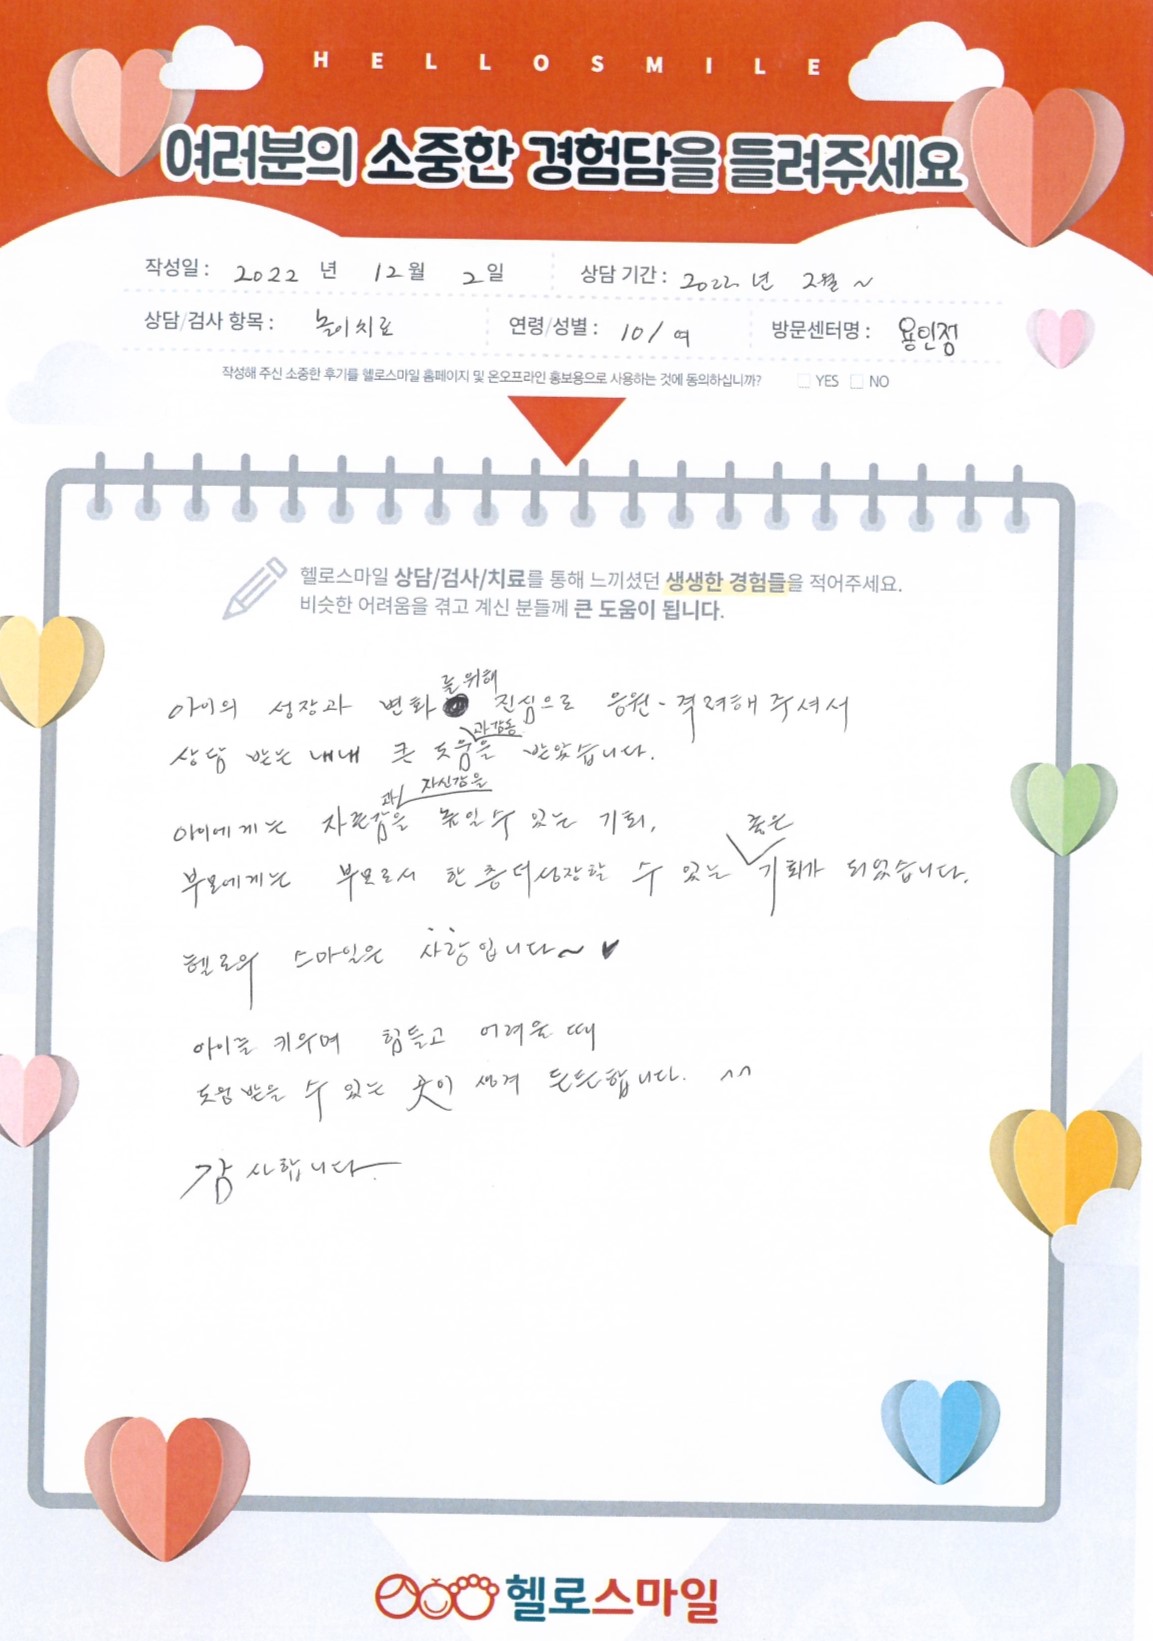 HELLOSMILE
여러분의 소중한 경험담을 들려주세요
작성일 : 2022 년 12월 2일 상담 기간 : 2022년 2월 ~
상담/검사 항목 : 놀이치료 연령/성별 : 10/여 방문센터명 : 용인점
작성해 주신 소중한 후기를 헬로스마일 홈페이지 및 온오프라인 홍보용으로 사용하는 것에 동의하십니까? YES NO
헬로스마일 상담/검사/치료를 통해 느끼셨던 생생한 경험들을 적어주세요.
비슷한 어려움을 겪고 계신 분들께 큰 도움이 됩니다.
아이의 성장과 변화를 위해 진심으로 응원·격려해 주셔서
상담 받는 내내 큰 도움과 감동을 받았습니다.
아이에게는 자존감과 자신감을 높일 수 있는 기회,
부모에게는 부모로서 한층 더 성장할 수 있는 좋은 기회가 되었습니다.
헬로의 스마일은 사랑입니다~ ♥
아이를 키우며 힘들고 어려울 때
도움 받을 수 있는 곳이 생겨 든든합니다. ^^
감사합니다.
헬로스마일